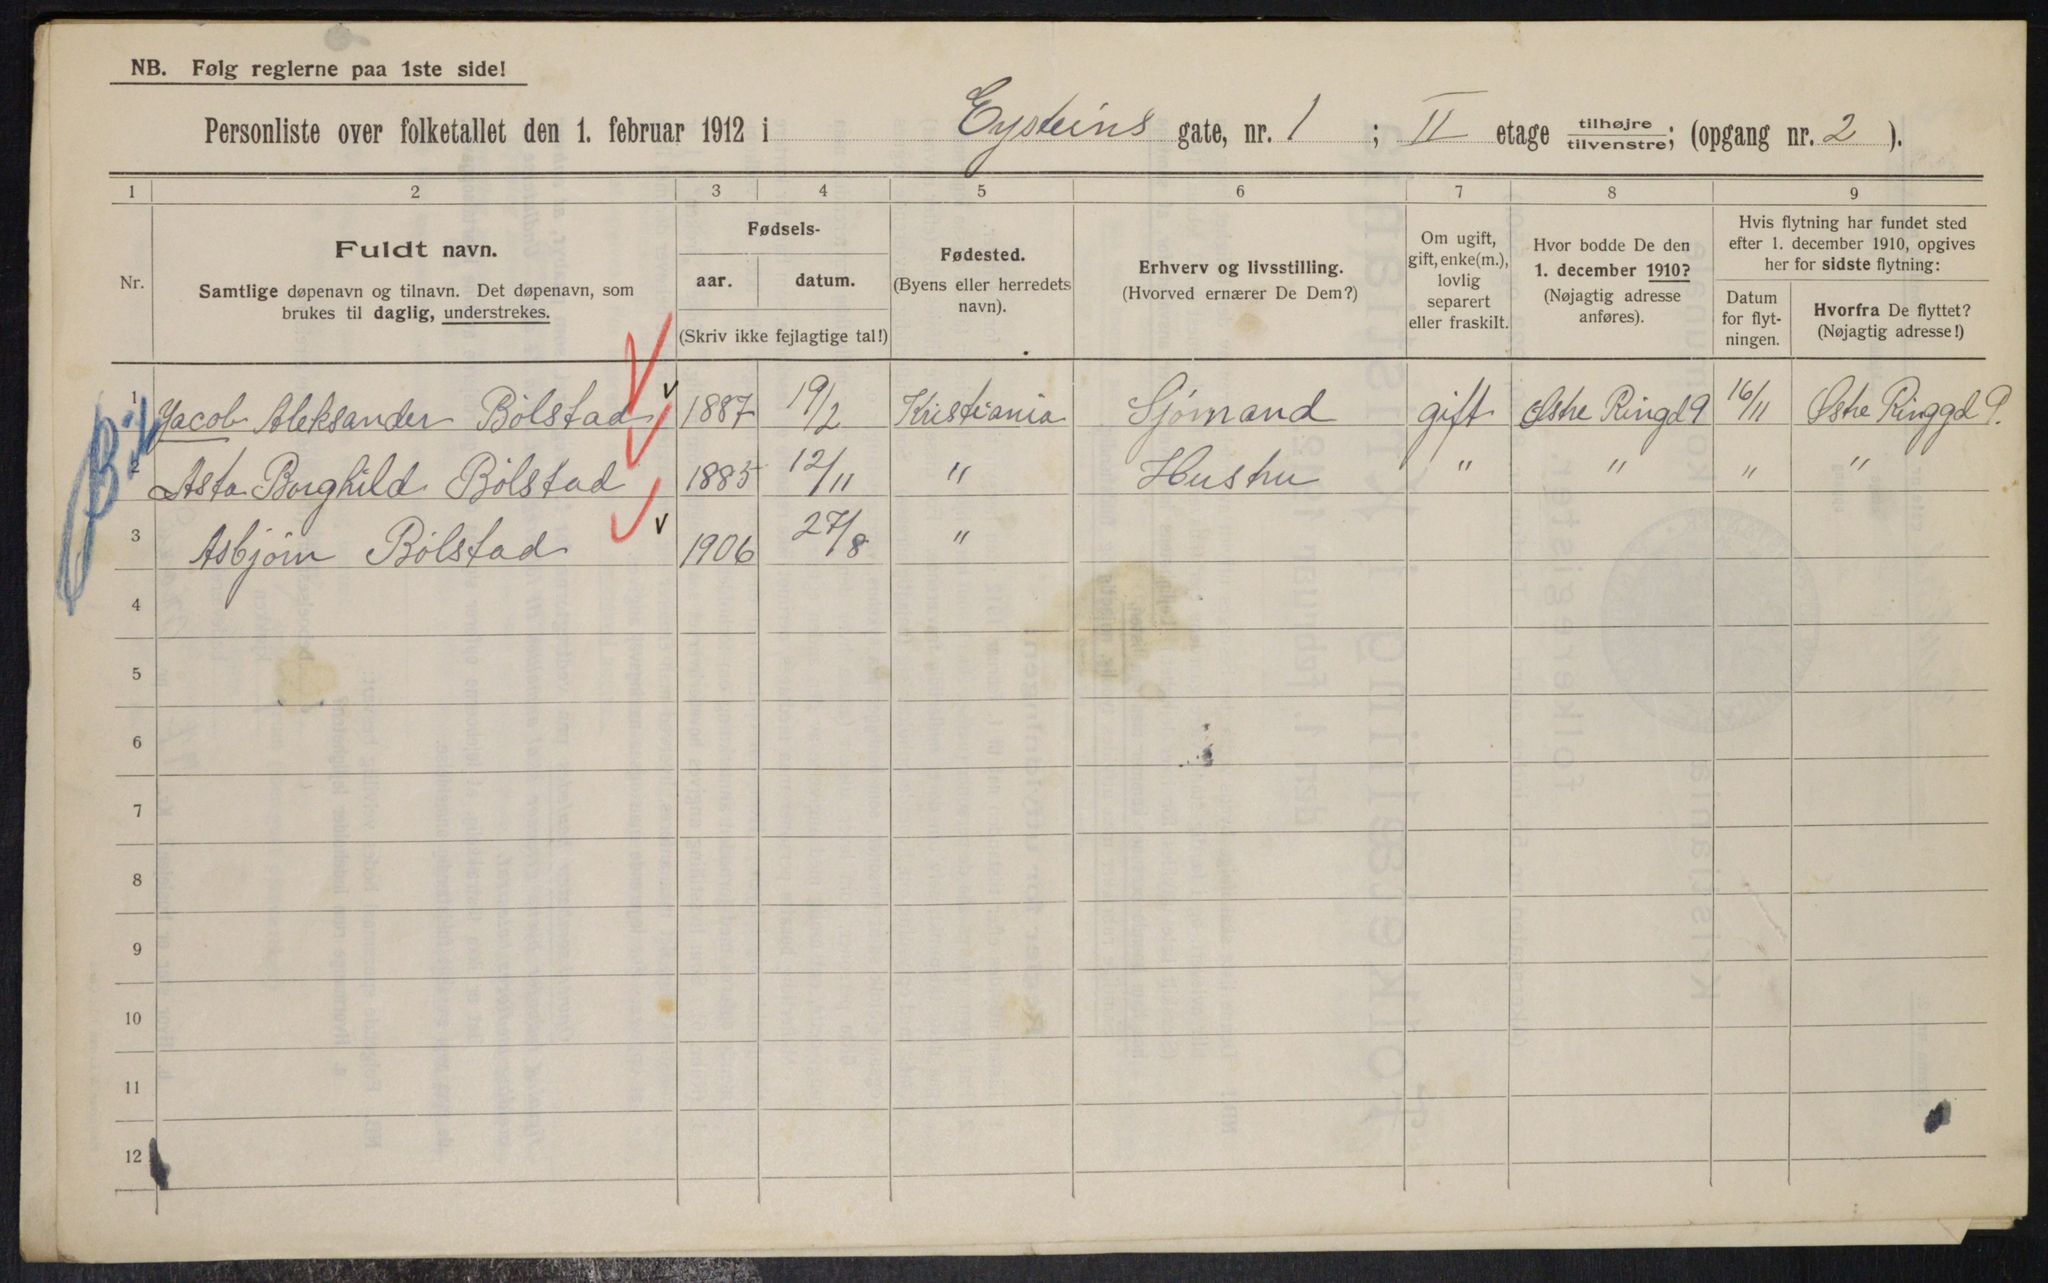 NB. Følg reglerne paa 1ste side!
Personliste over folketallet den 1. februar 1912 i Eysteins gate, nr. 1 ; II etage tilhøjre tilvenstre; (opgang nr. 2 ).
1 2 3 4 5 6 7 8 9
Nr.
Fuldt navn.
Samtlige døpenavn og tilnavn. Det døpenavn, som
brukes til daglig, understrekes.
Fødsels-
aar. datum.
(Skriv ikke fejlagtige tal!)
Fødested.
(Byens eller herredets
navn).
Erhverv og livsstilling.
(Hvorved ernærer De Dem?)
Om ugift,
gift, enke(m.),
lovlig
separert
eller fraskilt.
Hvor bodde De den
1. december 1910?
(Nøjagtig adresse
anføres).
Hvis flytning har fundet sted
efter 1. december 1910, opgives
her for sidste flytning:
Datum
for flyt-
ningen.
Hvorfra De flyttet?
(Nøjagtig adresse!)
1 Jacob Aleksander Bølstad v 1887 19/2 Kristiania Sjømand gift Østre Ringd 9 16/11 Østre Ringgd 9.
2 Asta Borghild Bølstad 1885 12/11 " Hustru " " " "
3 Asbjørn Bølstad v 1906 27/8 "
4
5
6
7
8
9
10
11
12